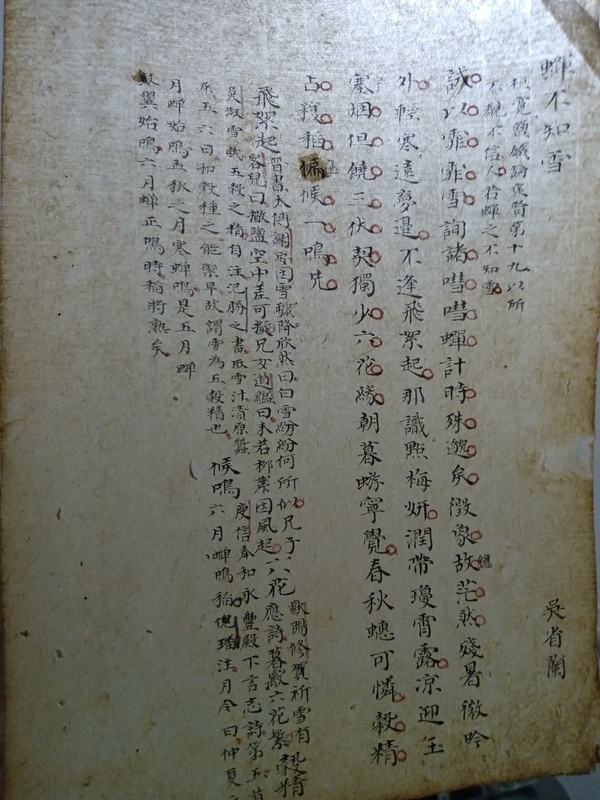 蟬不知雪
桓寬鹽鐵論相刺第十九以所
不覩不信人若蟬之不知雪
吳省蘭
試以霏霏雪詢諸嘒嘒蟬計時殊邈矣徵象故茫然殘暑微吟
總
外輕寒遠夢邊不逢飛絮起那識點梅妍潤帶瓊霄露涼迎玉
寒烟但饒三伏契獨少六花緣朝暮蜉寧覺春秋蟪可憐穀精
宇
占獲稻候一鳴先
飛絮起晉書太傅謝安因雪驟降欣然曰白雪紛紛何所似兄子
客兒曰撒鹽空中差可擬兄女道韞曰未若柳絮因風起
六花歐陽修賀祈雪有
應詩暮歠六花繁
穀精
吳淑雪賦五穀之精自注氾勝之書取雪汁漬原蠶
矢五六日和穀種之能禦旱故謂雪為五穀精也
候鳴庾信奉和永豐殿下言志詩第五首
六月蟬鳴稻倪璠注月令曰仲夏之
月蟬始鳴孟秋之月寒蟬鳴是五月蟬
鼓翼始鳴六月蟬正鳴時稻將熟矣